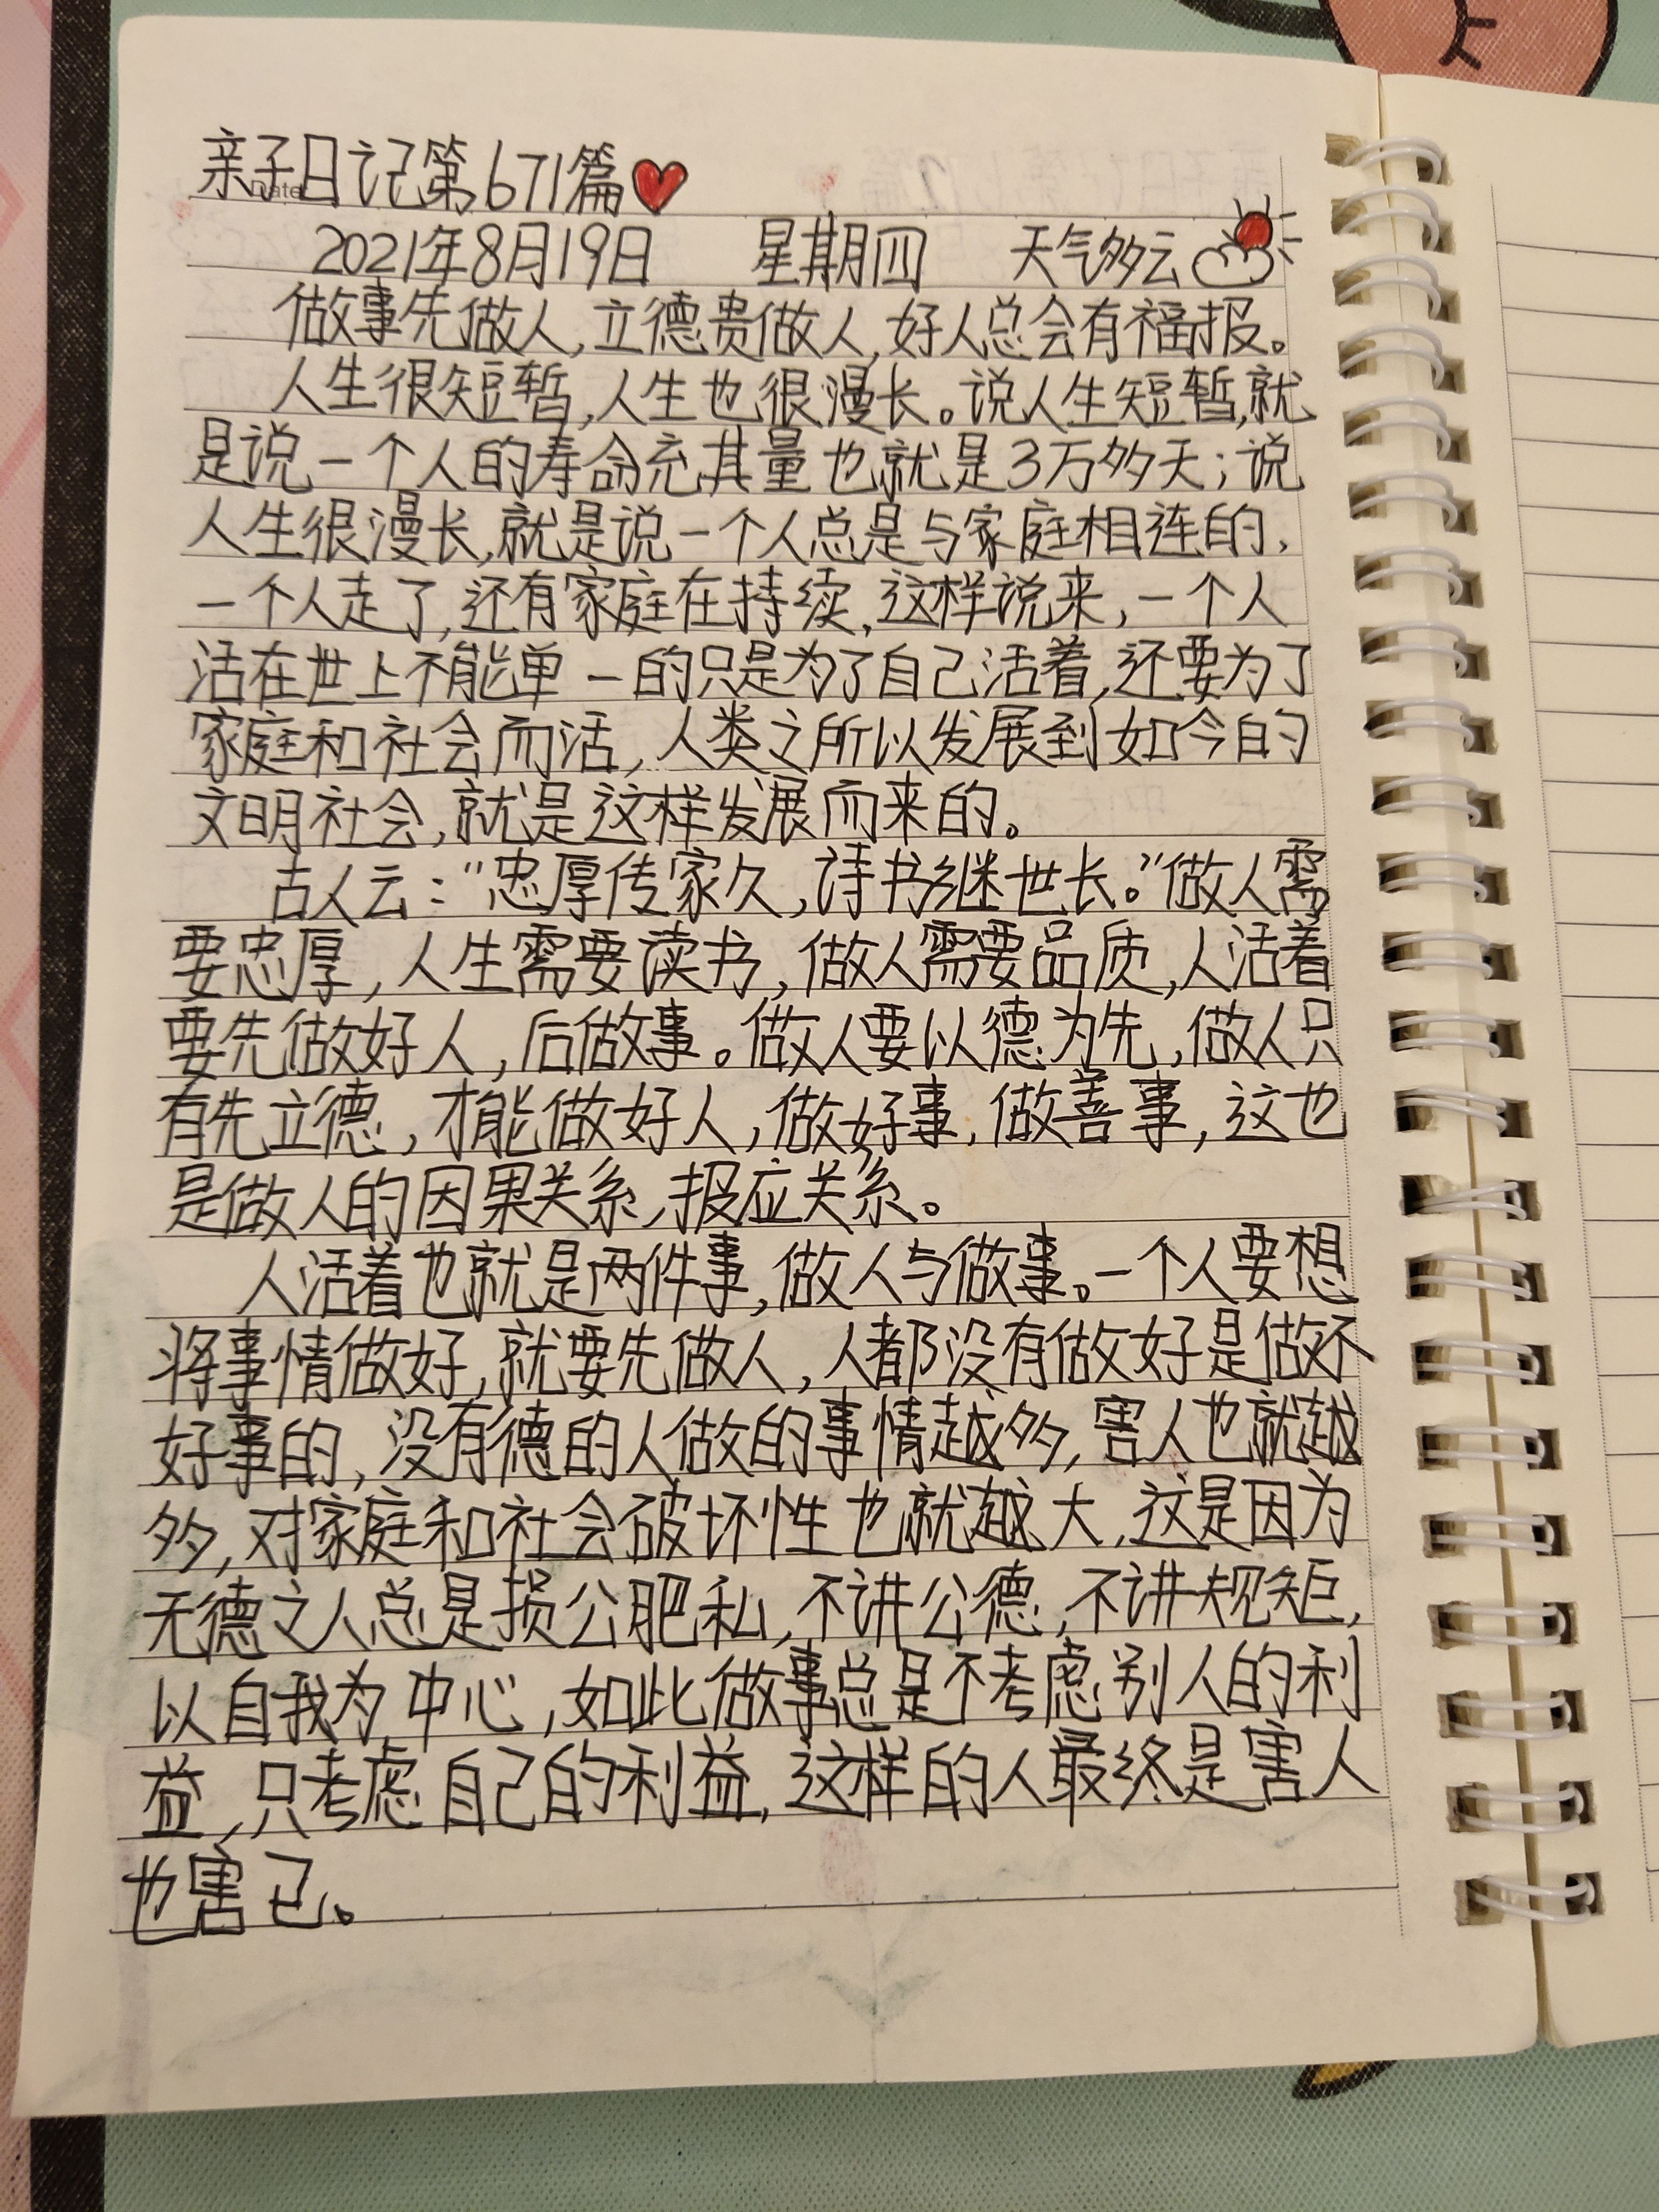 亲子日记第671篇
Date
2021年8月19日 星期四 天气多云
做事先做人,立德贵做人,好人总会有福报。
人生很短暂,人生也很漫长。说人生短暂,就
是说一个人的寿命充其量也就是3万多天;说
人生很漫长,就是说一个人总是与家庭相连的,
一个人走了,还有家庭在持续,这样说来,一个人
活在世上不能单一的只是为了自己活着,还要为了
家庭和社会而活,人类之所以发展到如今的
文明社会,就是这样发展而来的。
古人云:“忠厚传家久,诗书继世长。”做人需
要忠厚,人生需要读书,做人需要品质,人活着
要先做好人,后做事。做人要以德为先,做人只
有先立德,才能做好人,做好事,做善事,这也
是做人的因果关系,报应关系。
人活着也就是两件事,做人与做事。一个人要想
将事情做好,就要先做人,人都没有做好是做不
好事的,没有德的人做的事情越多,害人也就越
多,对家庭和社会破坏性也就越大,这是因为
无德之人总是损公肥私,不讲公德,不讲规矩,
以自我为中心,如此做事总是不考虑别人的利
益,只考虑自己的利益,这样的人最终是害人
也害己。